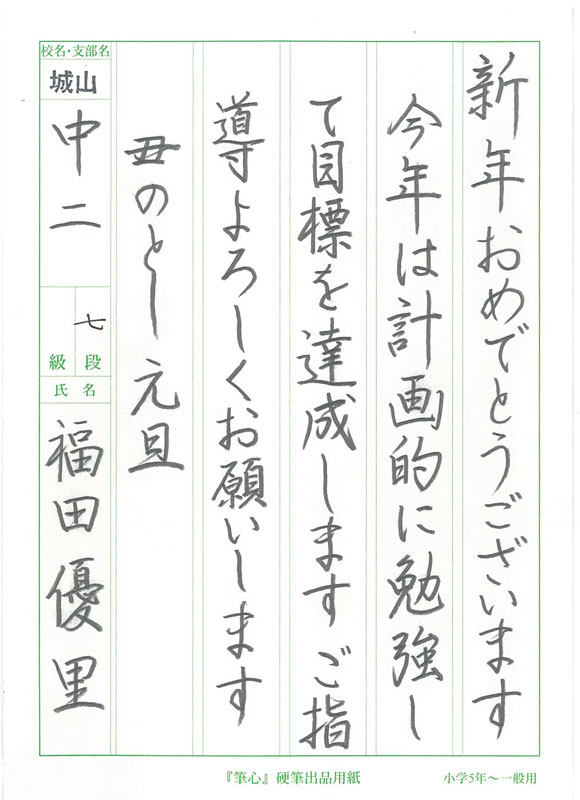 新年おめでとうございます
今年は計画的に勉強し
て目標を達成します ご指
導よろしくお願いします
丑のとし 元旦
校名・支部名
城山
中二
七
級 段
氏名
福田優里
『筆心』硬筆出品用紙
小学5年～一般用